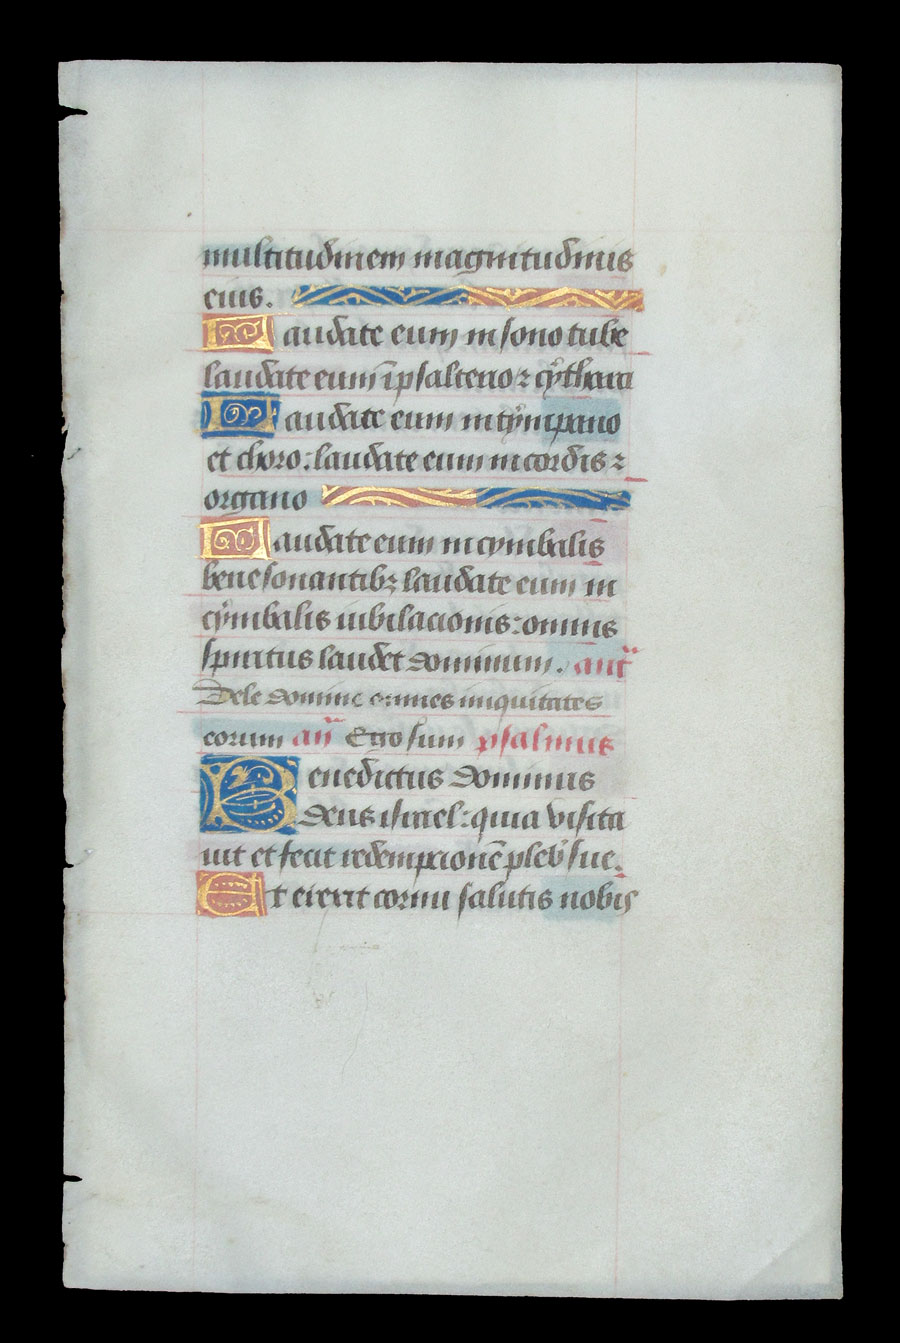 multitudinem magnitudinis
eius.
Laudate eum in sono tube
laudate eum ī psalterio ⁊ cẏthara
Laudate eum in tẏmpano
et choro: laudate eum in cordis ⁊
organo
Laudate eum in cymbalis
bene sonantibꝫ laudate eum in
cẏmbalis iubilacionis: omnis
spiritus laudet dominum. añt̃
Dele domine omnes iniquitates
eorum añ Ego sum psalmus
Benedictus dominus
deus israel: quia visita
uit et fecit redempcionē pleb᷒ sue.
Et erexit cornu salutis nobis